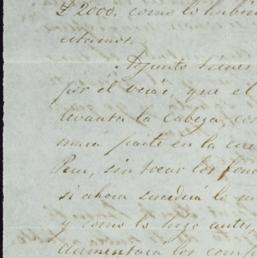 £2000, como lo hubie
citamos.
Adjunto tienes
por él verás, que el
levanta la cabeza, co
mará parte en la cre
Peru, sin tocar los fond
si ahora sucederá lo m
y como lo hizo antes,
aumentará los comp